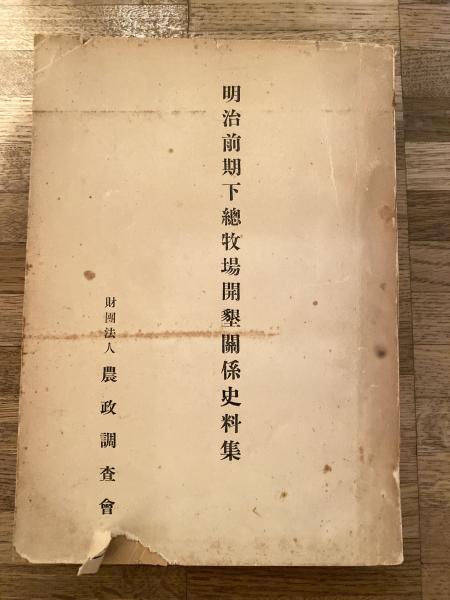 明治前期下總牧場開墾關係史料集
財團法人 農政調査會